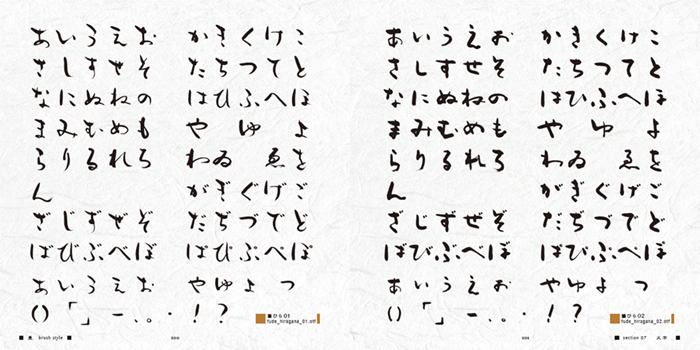 あいうえお かきくけこ
さしすせそ たちつてと
なにぬねの はひふへほ
まみむめも や ゆ よ
らりるれろ わゐ ゑを
ん がぎぐげご
ざじずぜぞ だぢづでど
ばびぶべぼ ぱぴぷぺぽ
あいうえお やゆよ つ
()「」ー、。・！？
■ひら01
fude_hiragana_01.otf
brush style
あいうえお かきくけこ
さしすせそ たちつてと
なにぬねの はひふへほ
まみむめも や ゆ よ
らりるれろ わゐ ゑを
ん がぎぐげご
ざじずぜぞ だぢづでど
ばびぶべぼ ぱぴぷぺぽ
あいうえお やゆよ つ
()「」ー、。・！？
■ひら02
fude_hiragana_02.otf
section 07